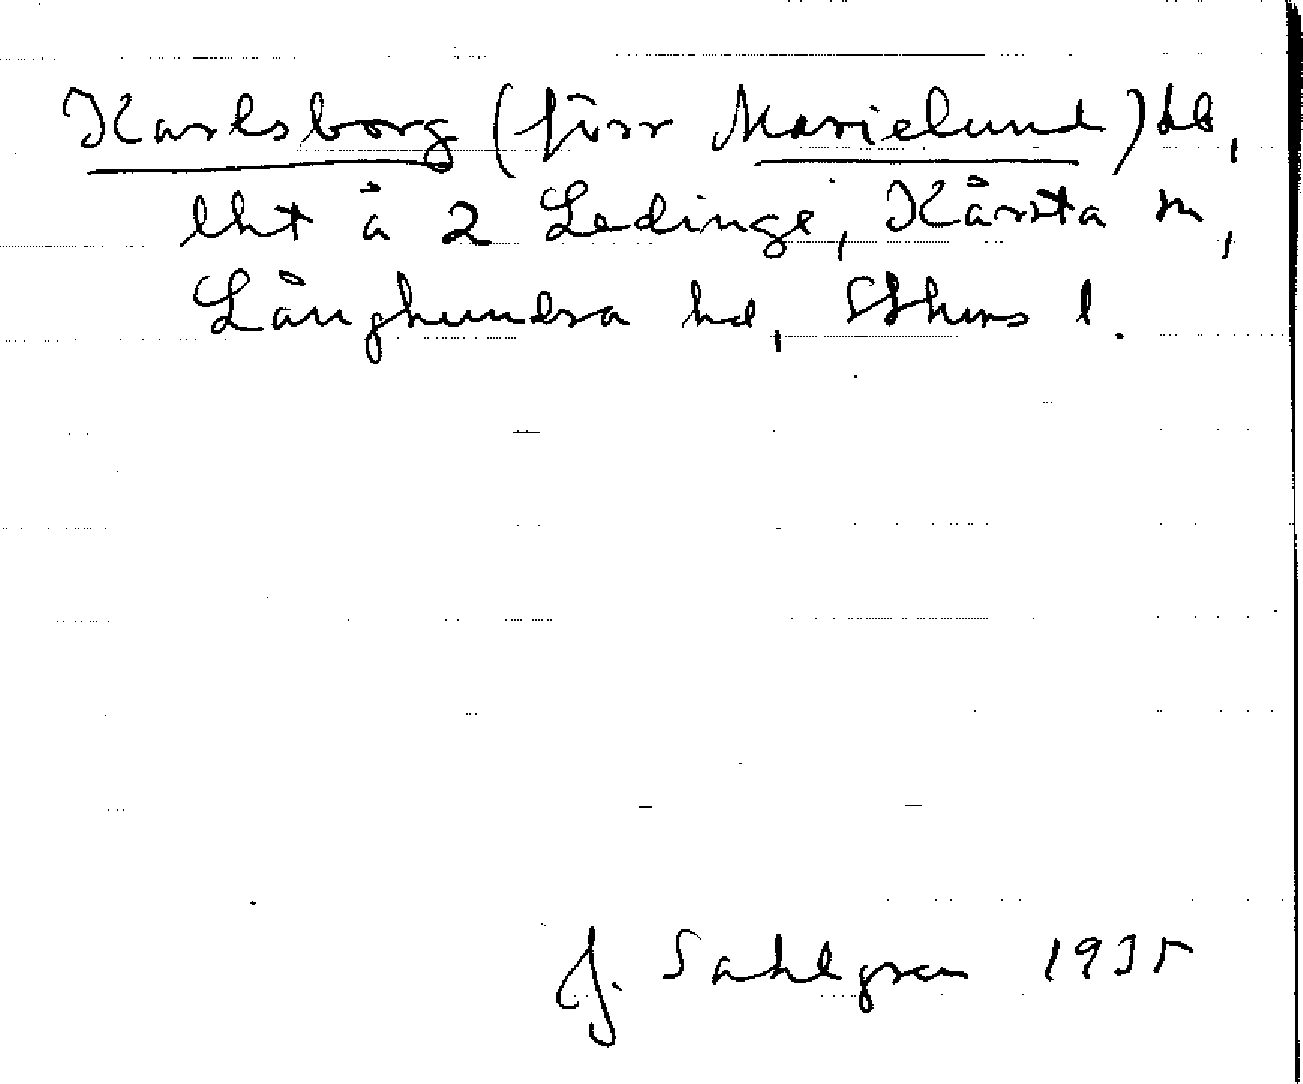 Karlsborg (förr Marielund) lb,
lht å 2 Ledinge, Kårsta sn,
Långhundra hd, Sthms l.
J. Sahlgren 1935